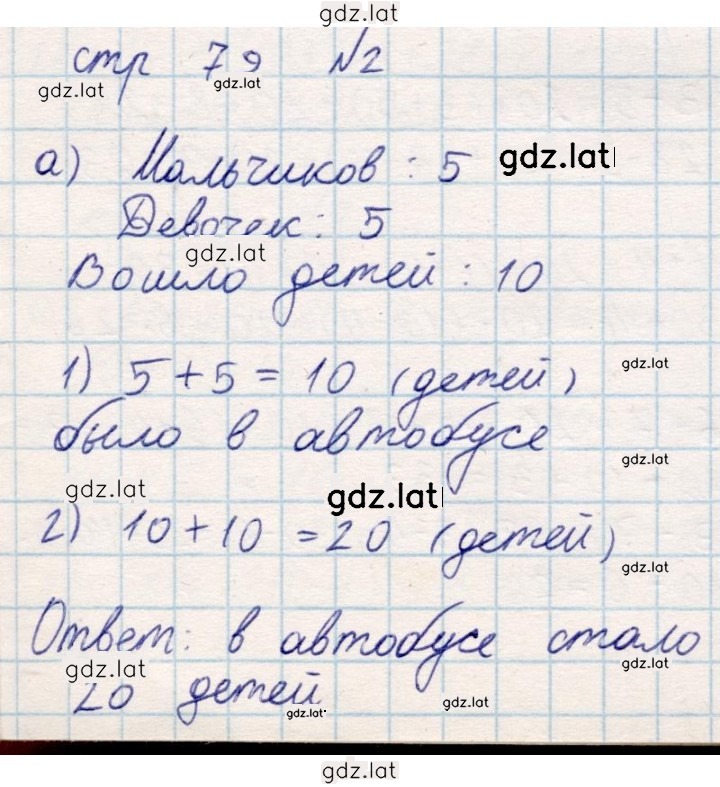 gdz.lat
стр 79 №2
gdz.lat gdz.lat
а) Мальчиков : 5 gdz.lat
Девочек: 5
gdz.lat
Вошло детей : 10
1) 5 + 5 = 10 (детей) gdz.lat
было в автобусе
gdz.lat
gdz.lat gdz.lat
2) 10 + 10 = 20 (детей)
gdz.lat
Ответ: в автобусе стало
gdz.lat gdz.lat
20 детей
gdz.lat gdz.lat
gdz.lat